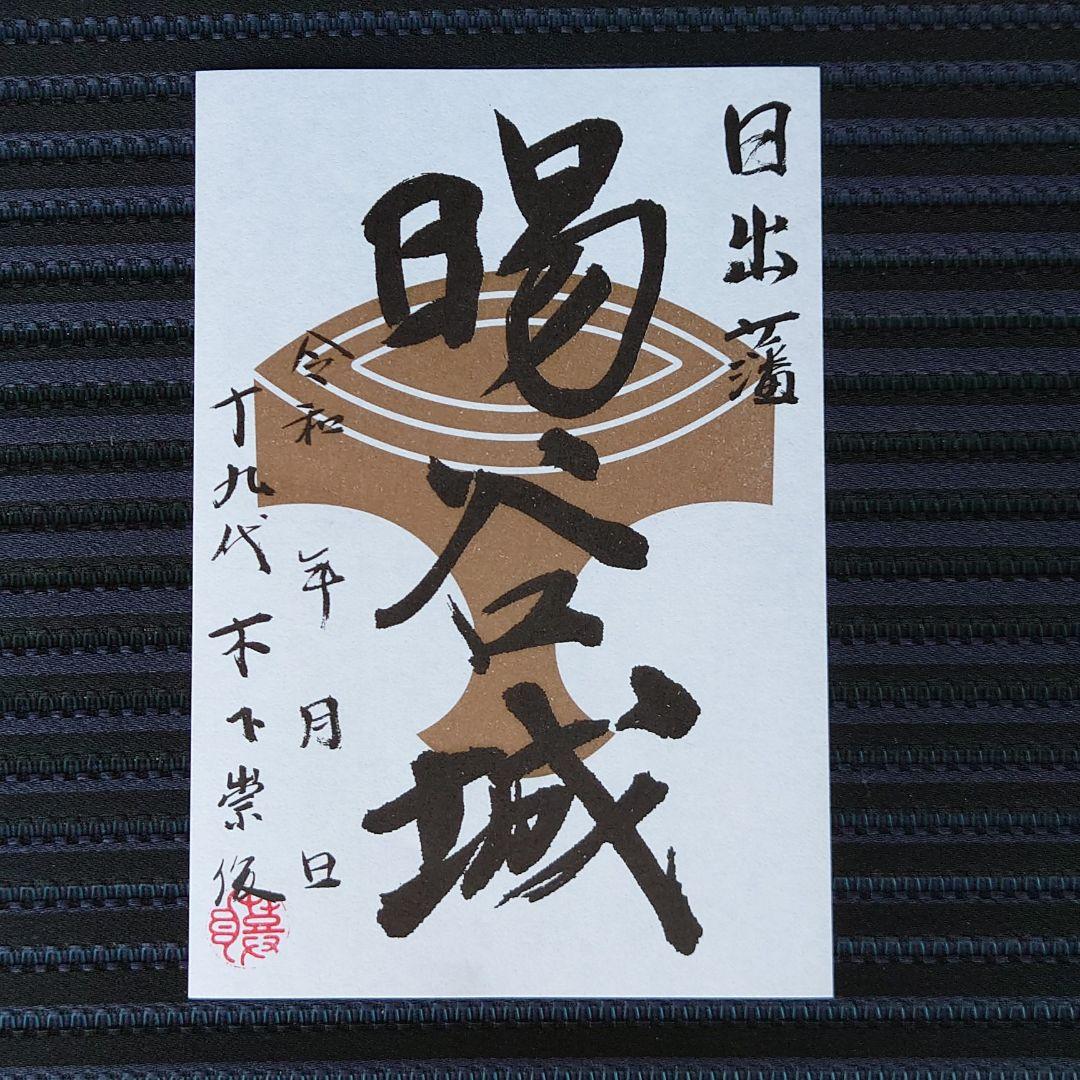 日出藩
暘谷城
令和 年 月 日
十九代 木下崇俊